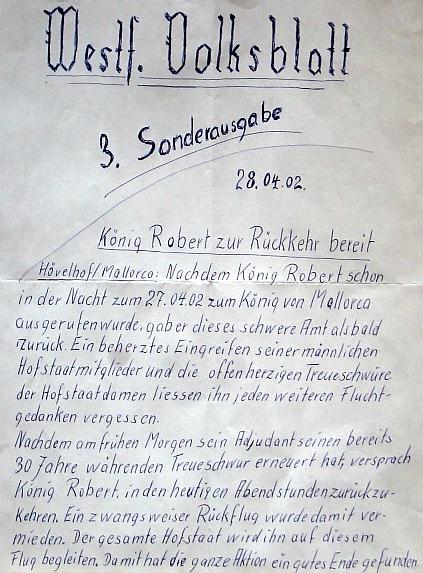 Westf. Volksblatt
3. Sonderausgabe
28.04.02.
König Robert zur Rückkehr bereit
Hövelhof/Mallorca: Nachdem König Robert schon
in der Nacht zum 27.04.02 zum König von Mallorca
ausgerufen wurde, gab er dieses schwere Amt alsbald
zurück. Ein beherztes Eingreifen seiner männlichen
Hofstaatmitglieder und die offenherzigen Treueschwüre
der Hofstaatdamen liessen ihn jeden weiteren Flucht-
gedanken vergessen.
Nachdem am frühen Morgen sein Adjudant seinen bereits
30 Jahre währenden Treueschwur erneuert hat, versprach
König Robert, in den heutigen Abendstunden zurückzu-
kehren. Ein zwangsweiser Rückflug wurde damit ver-
mieden. Der gesamte Hofstaat wird ihn auf diesem
Flug begleiten. Damit hat die ganze Aktion ein gutes Ende gefunden.